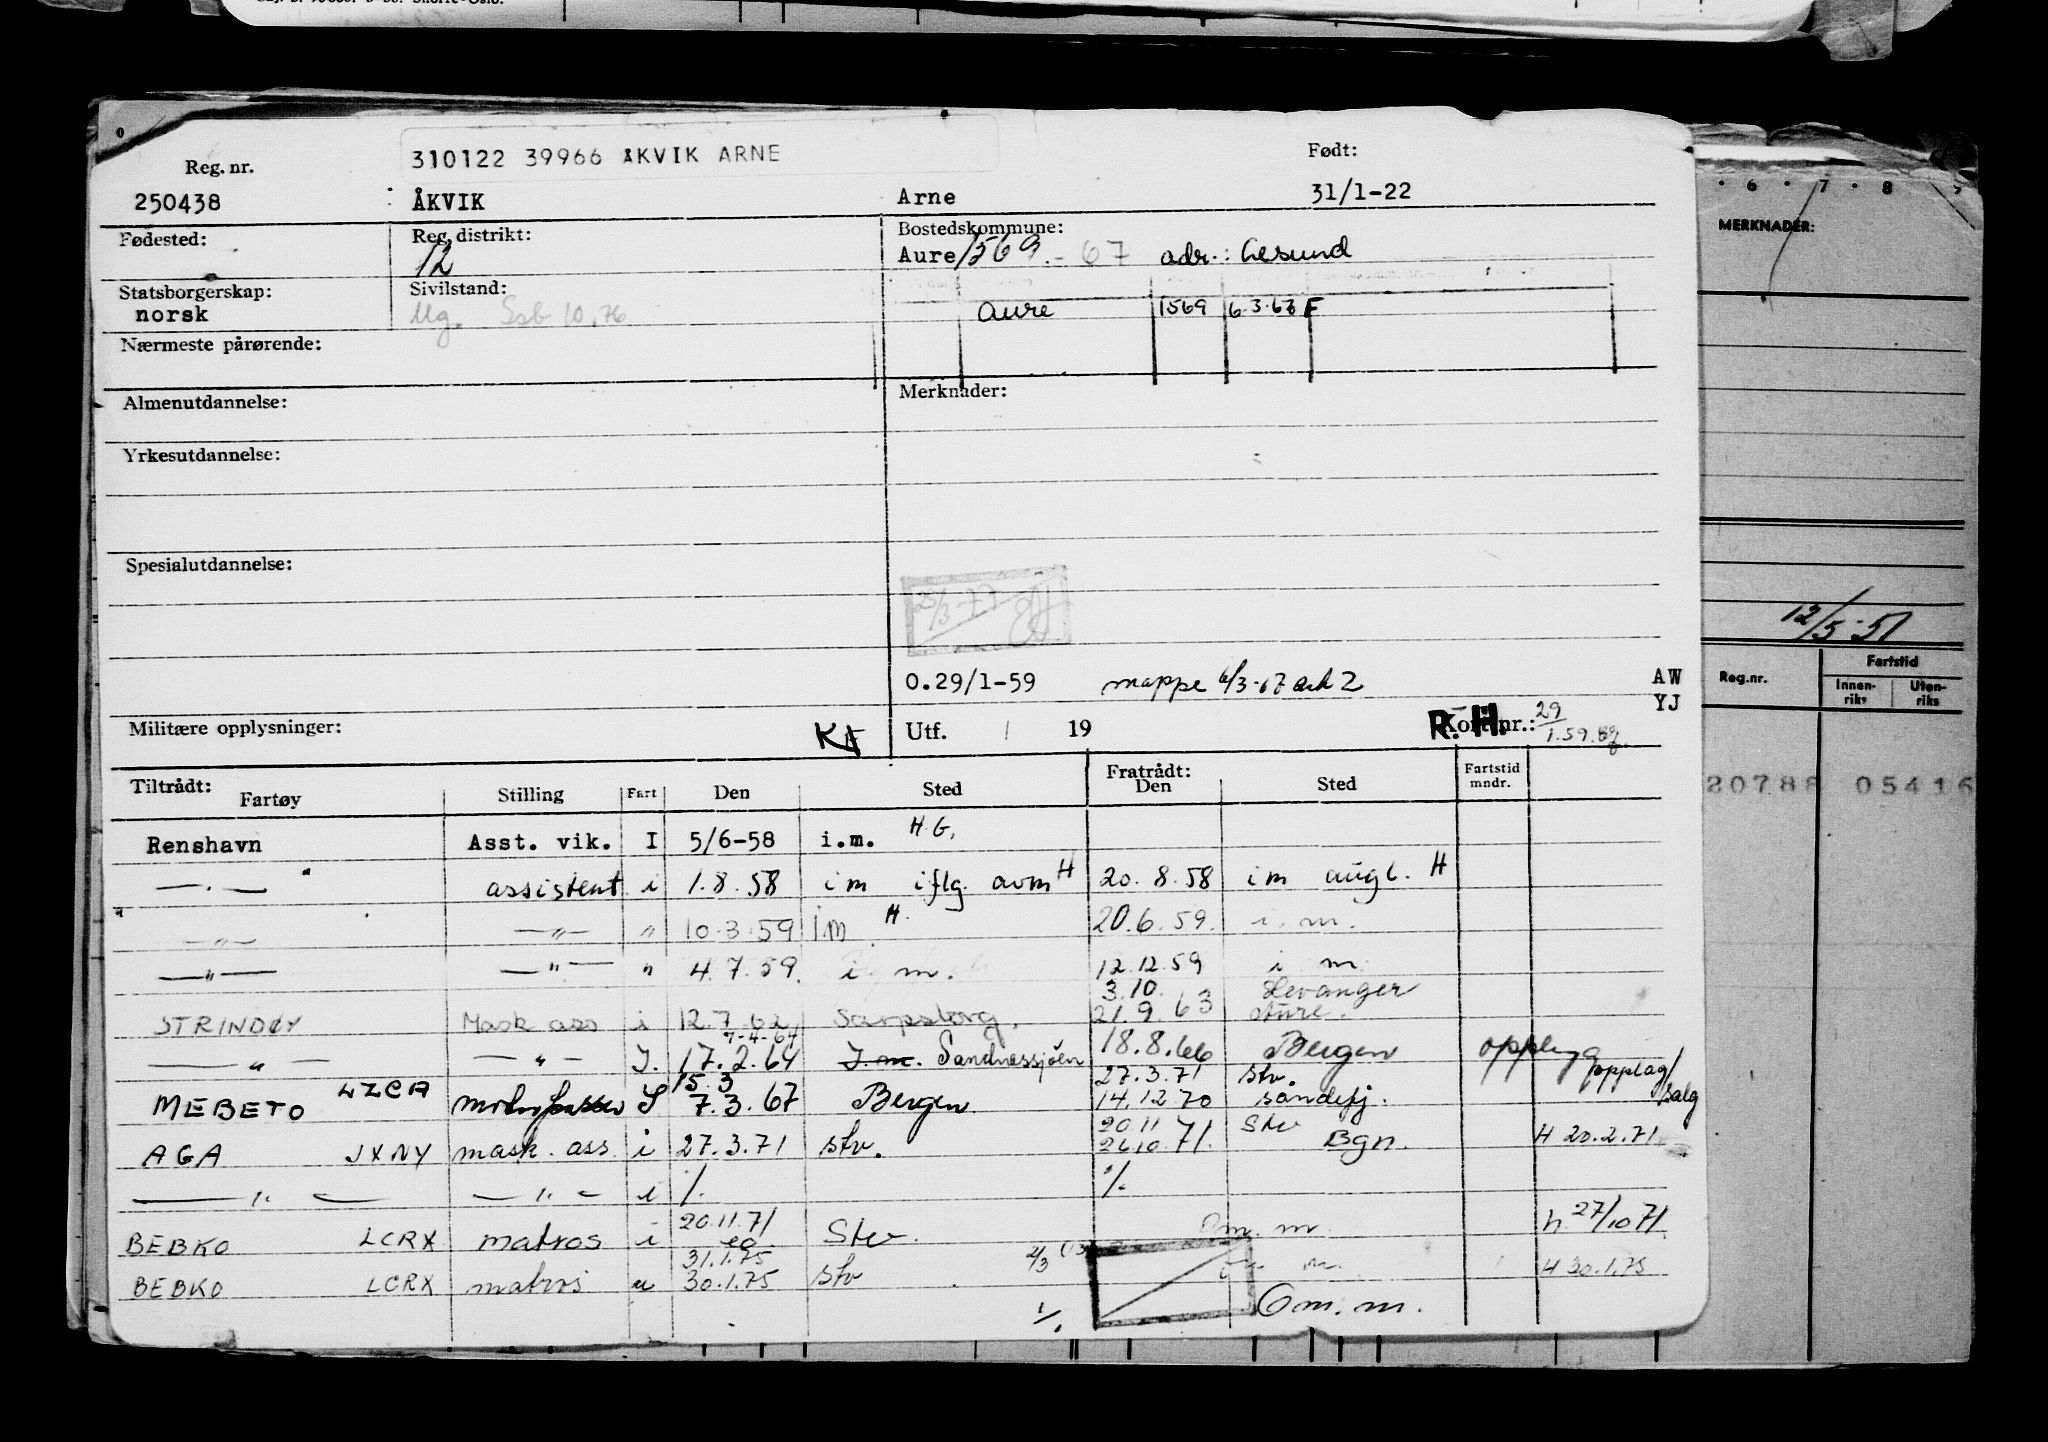 310122 39966 ÅKVIK ARNE
Reg. nr. Født:
250438 ÅKVIK Arne 31/1-22
Fødested: Reg. distrikt: 12 Bostedskommune:
Aure 1569.-67 adr.:
Statsborgerskap: Sivilstand:
norsk Ug. Ssb 10.76 Aure 1569 6.3.67 F
Nærmeste pårørende:
Almenutdannelse: Merknader:
Yrkesutdannelse:
Spesialutdannelse:
0.29/1-59 mappe 6/3-67 ark 2 AW
YJ
Militære opplysninger: Utf. 19 R.H. Kort nr.: 29/1.59
Tiltrådt: Fratrådt: Fartstid
Fartøy Stilling Fart Den Sted Den Sted mndr.
Renshavn Asst. vik. I 5/6-58 i.m. H.G.
—"— assistent i 1.8.58 i m iflg. avm H 20.8.58 i m augl. H
—"— —"— " 10.3.59 i.m. H. 20.6.59. i. m.
—"— —"— " 4.7.59. i. m. 12.12.59 i m
3.10.
STRINDØY Mask ass i 12.7.62 Sarpsborg. 21.9.63 Aure.
7-4-64
—"— —"— I. 17.2.64 I. m. Sandnessjøen 18.8.66 Bergen opplag
15.3 27.3.71 Stv. opplag/salg
MEBETO LZCA S 7.3.67 Bergen 14.12.70 Sandefj.
20.11 Stv
AGA JXNY mask. ass. i 27.3.71 Stv. 26.10.71. Bgn. H 20.2.71
—"— —"— i /. /.
20.11.71
BEBKO LCRX matros i Stv. Om. m. h. 27/10 71
31.1.75
BEBKO LCRX matros u 30.1.75 Stv H 30.1.75
Om. m.
6 7 8
MERKNADER:
12/5-51
Reg.nr. Fartstid
Innenriks Utenriks
20788 05416